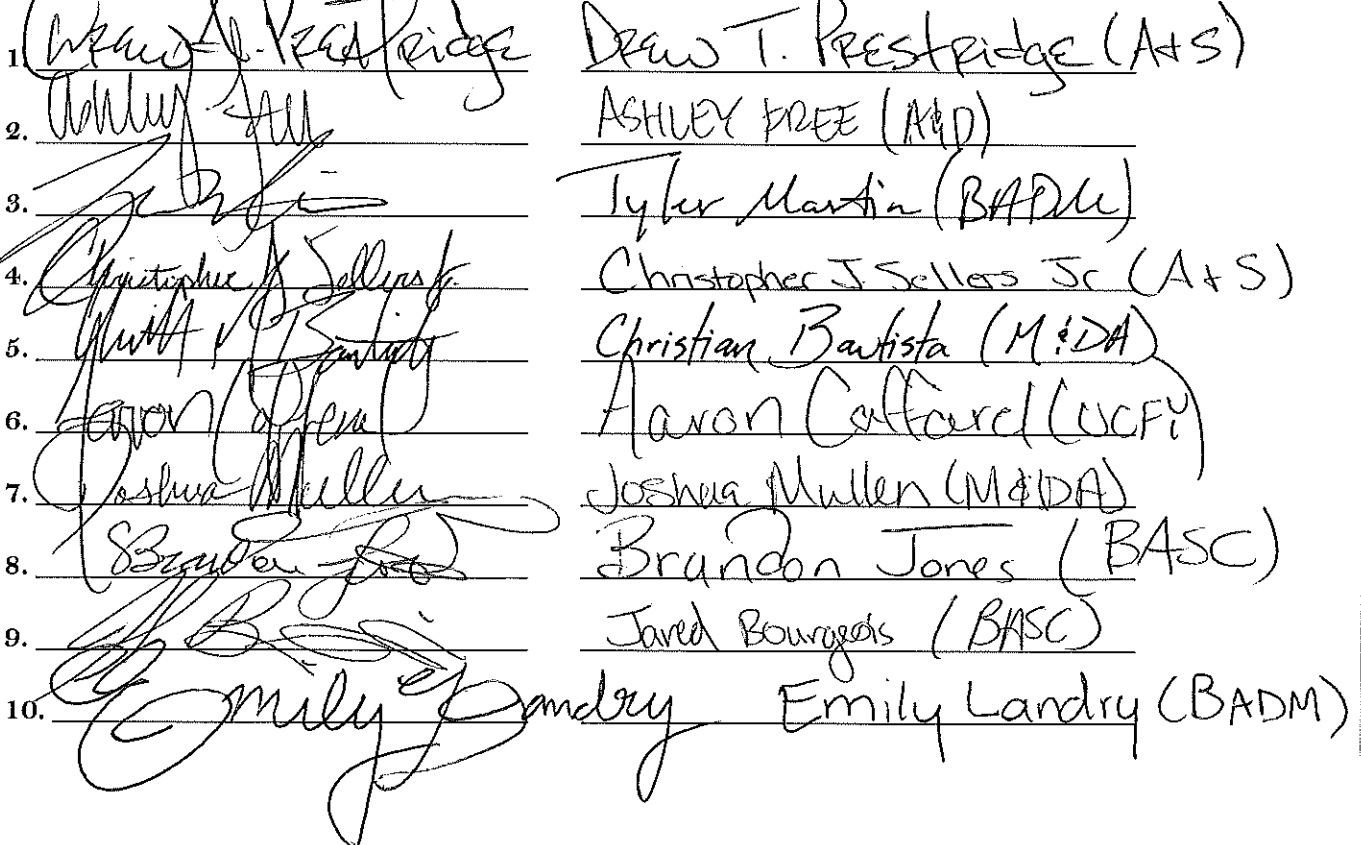 1. Drew T. Prestridge Drew T. Prestridge (A+S)
2. Ashley Free ASHLEY FREE (A&D)
3. Tyler Martin (BADM)
4. Christopher J Sellers Jr. Christopher J. Sellers Jr (A+S)
5. Bautista Christian Bautista (M&DA)
6. Aaron Caffarel Aaron Caffarel (UCFY)
7. Joshua Mullen Joshua Mullen (M&DA)
8. Brandon Jones Brandon Jones (BASC)
9. Jared Bourgeois (BASC)
10. Emily Landry Emily Landry (BADM)